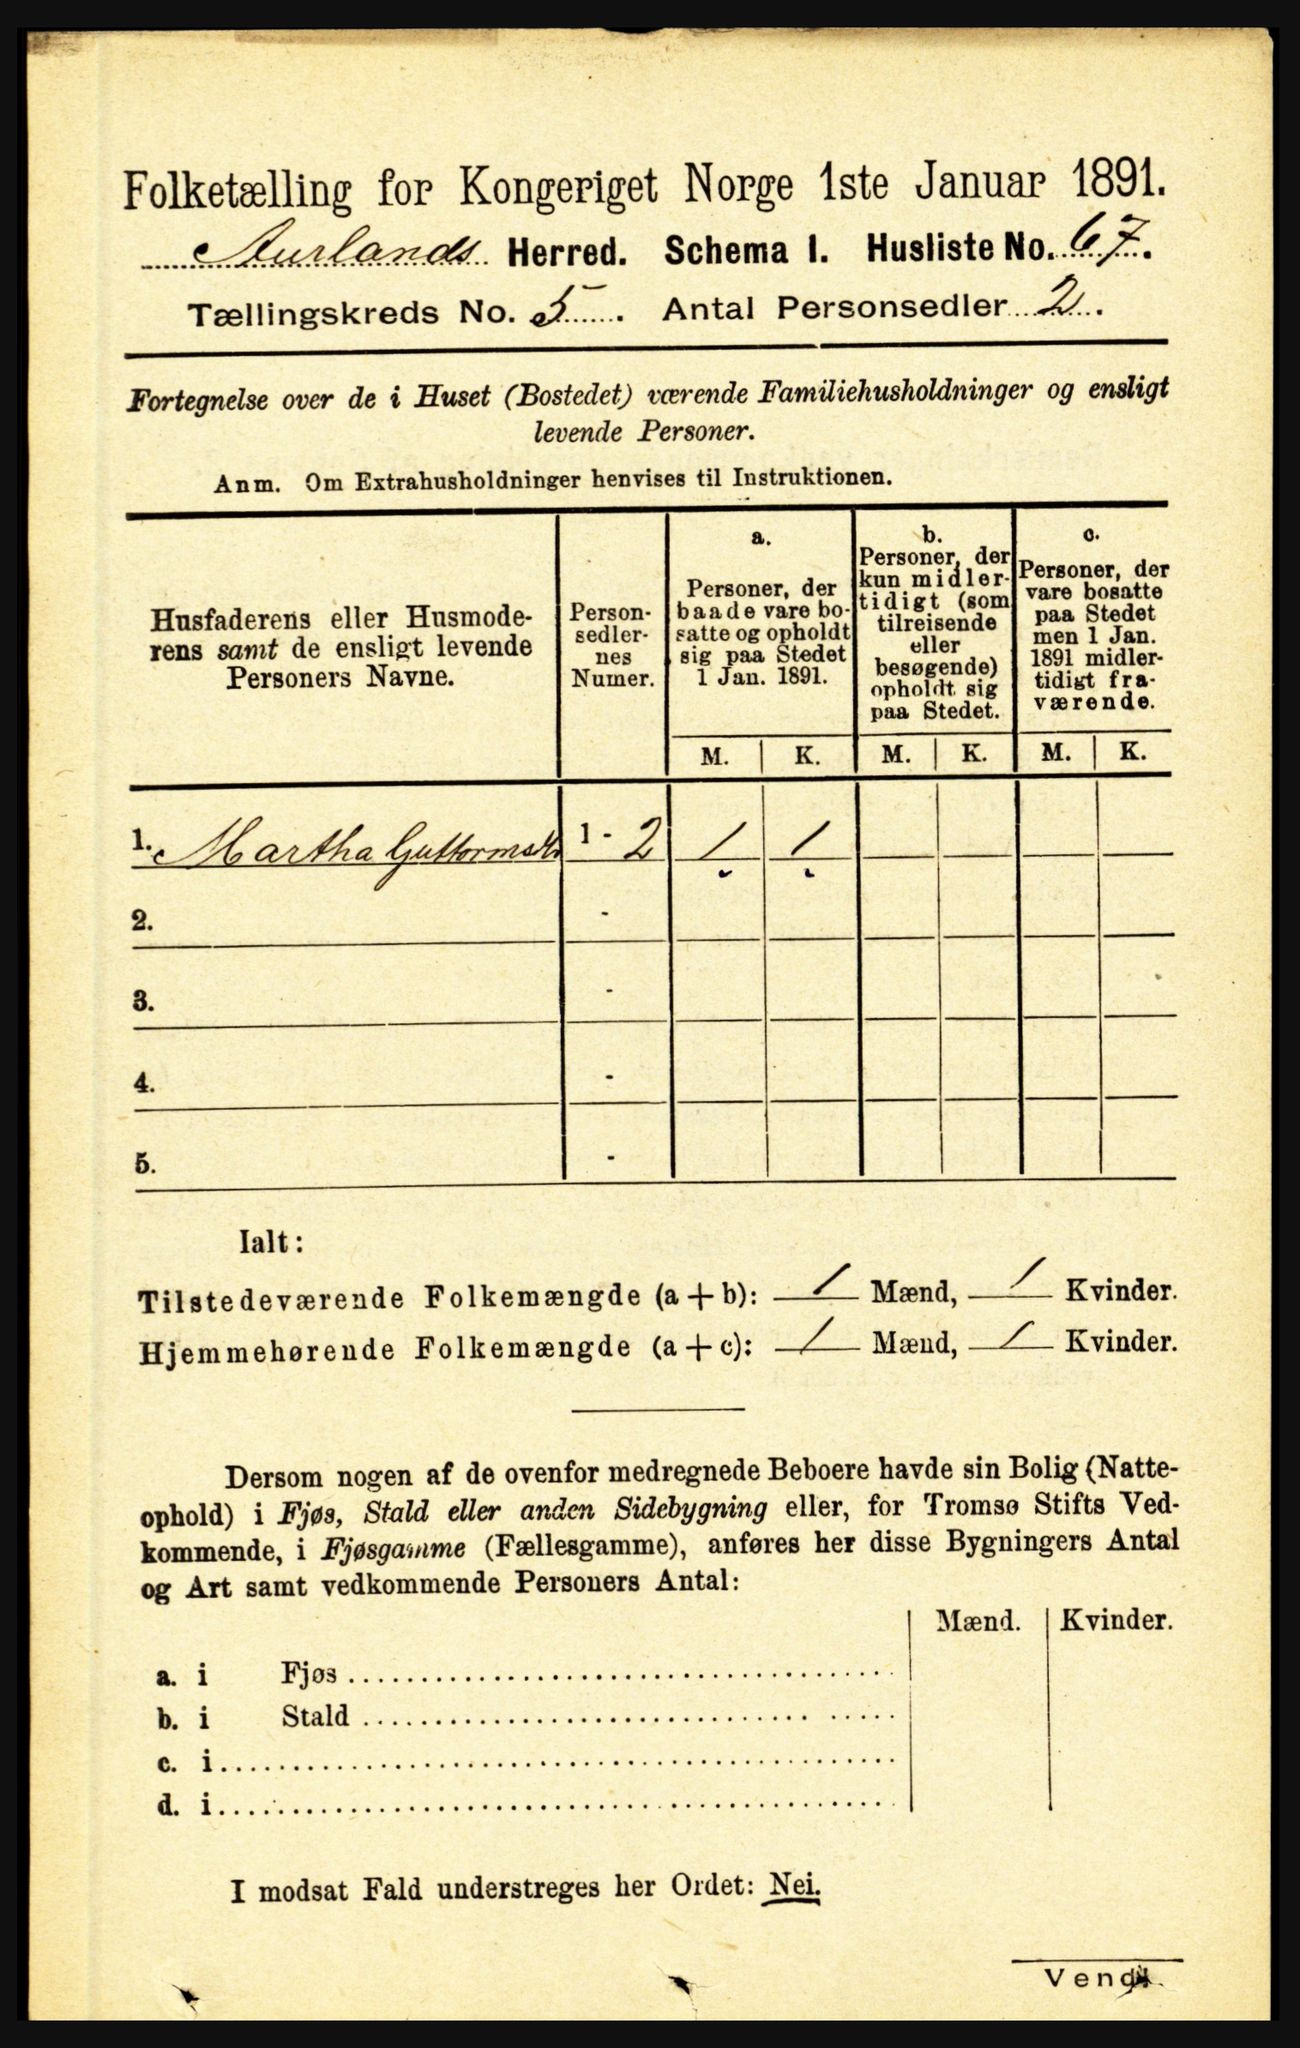 Folketælling for Kongeriget Norge 1ste Januar 1891.
Aurlands Herred. Schema I. Husliste No. 67.
Tællingskreds No. 5. Antal Personsedler 2.
Fortegnelse over de i Huset (Bostedet) værende Familiehusholdninger og ensligt
levende Personer.
Anm. Om Extrahusholdninger henvises til Instruktionen.
Husfaderens eller Husmode-
rens samt de ensligt levende
Personers Navne.
Person-
sedler-
nes
Numer.
a.
Personer, der
baade vare bo-
satte og opholdt
sig paa Stedet
1 Jan. 1891.
b.
Personer, der
kun midler-
tidigt (som
tilreisende
eller
besøgende)
opholdt sig
paa Stedet.
c.
Personer, der
vare bosatte
paa Stedet
men 1 Jan.
1891 midler-
tidigt fra-
værende.
M. K. M. K. M. K.
1. Martha Guttormsdtr 1 - 2 1 1
2. -
3. -
4. -
5. -
Ialt:
Tilstedeværende Folkemængde (a + b): 1 Mænd, 1 Kvinder.
Hjemmehørende Folkemængde (a + c): 1 Mænd, 1 Kvinder.
Dersom nogen af de ovenfor medregnede Beboere havde sin Bolig (Natte-
ophold) i Fjøs, Stald eller anden Sidebygning eller, for Tromsø Stifts Ved-
kommende, i Fjøsgamme (Fællesgamme), anføres her disse Bygningers Antal
og Art samt vedkommende Personers Antal:
Mænd. Kvinder.
a. i Fjøs
b. i Stald
c. i
d. i
I modsat Fald understreges her Ordet: Nei.
Vend.